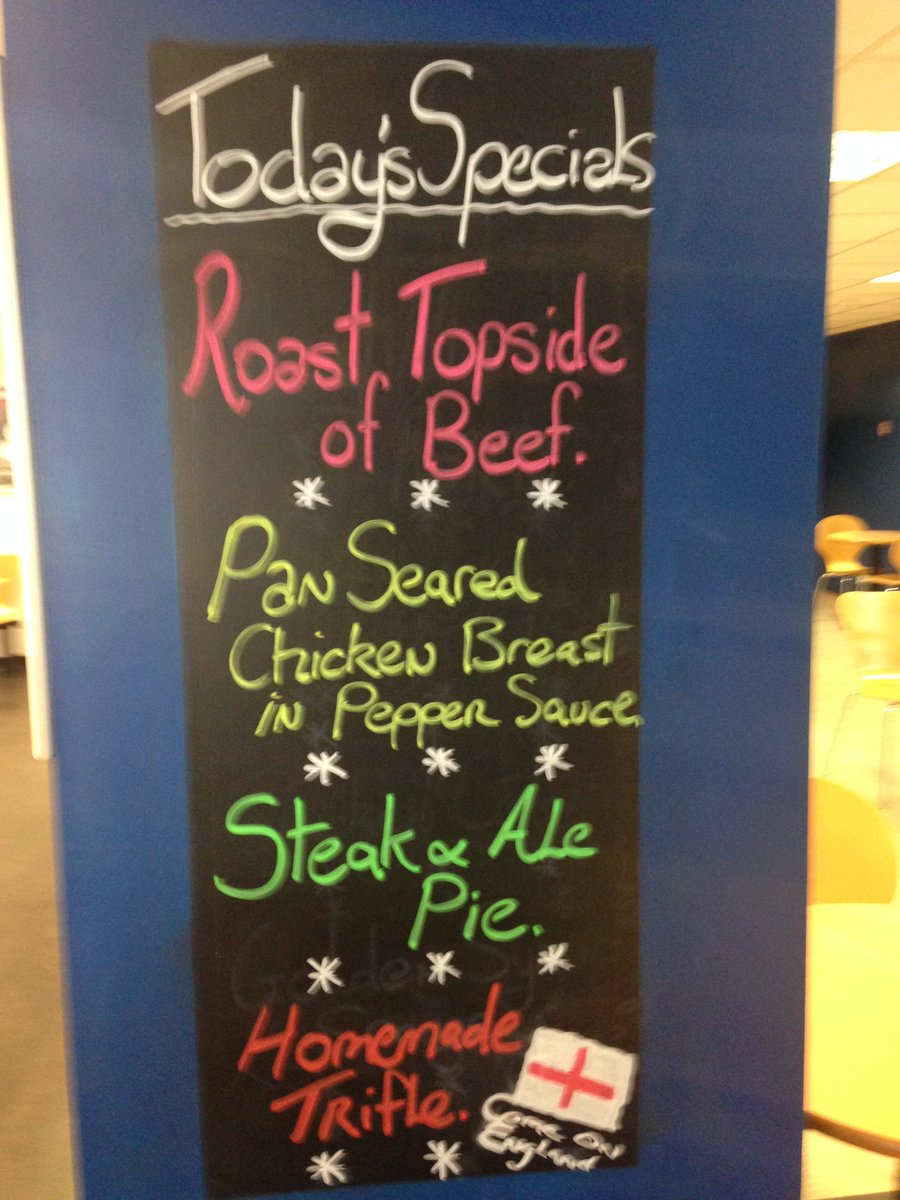 Today's Specials
Roast Topside
of Beef.
* * *
Pan Seared
Chicken Breast
in Pepper Sauce.
* * *
Steak & Ale
Pie.
* * *
Homemade
Trifle.
Come on
England
* *